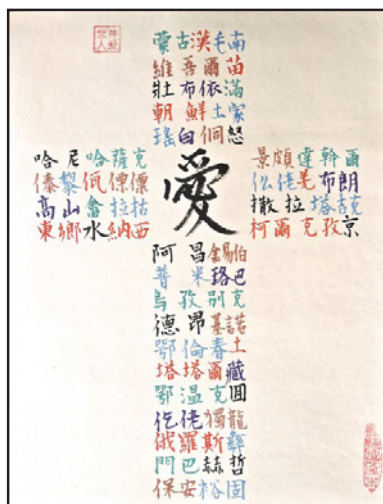 蒙古漢毛南
維吾爾苗
壯布依滿
朝鮮土家
瑤白侗怒
哈尼哈薩克
傣黎佤傈僳
高山畲拉祜
東鄉水納西
愛
景頗達斡爾
仫佬羌布朗
撒拉塔吉克
柯爾克孜京
阿昌錫伯
普米珞巴
烏孜別克
德昂基諾
鄂倫春土
塔塔爾藏
鄂温克回
仡佬獨龍
俄羅斯彝
門巴赫哲
保安裕固